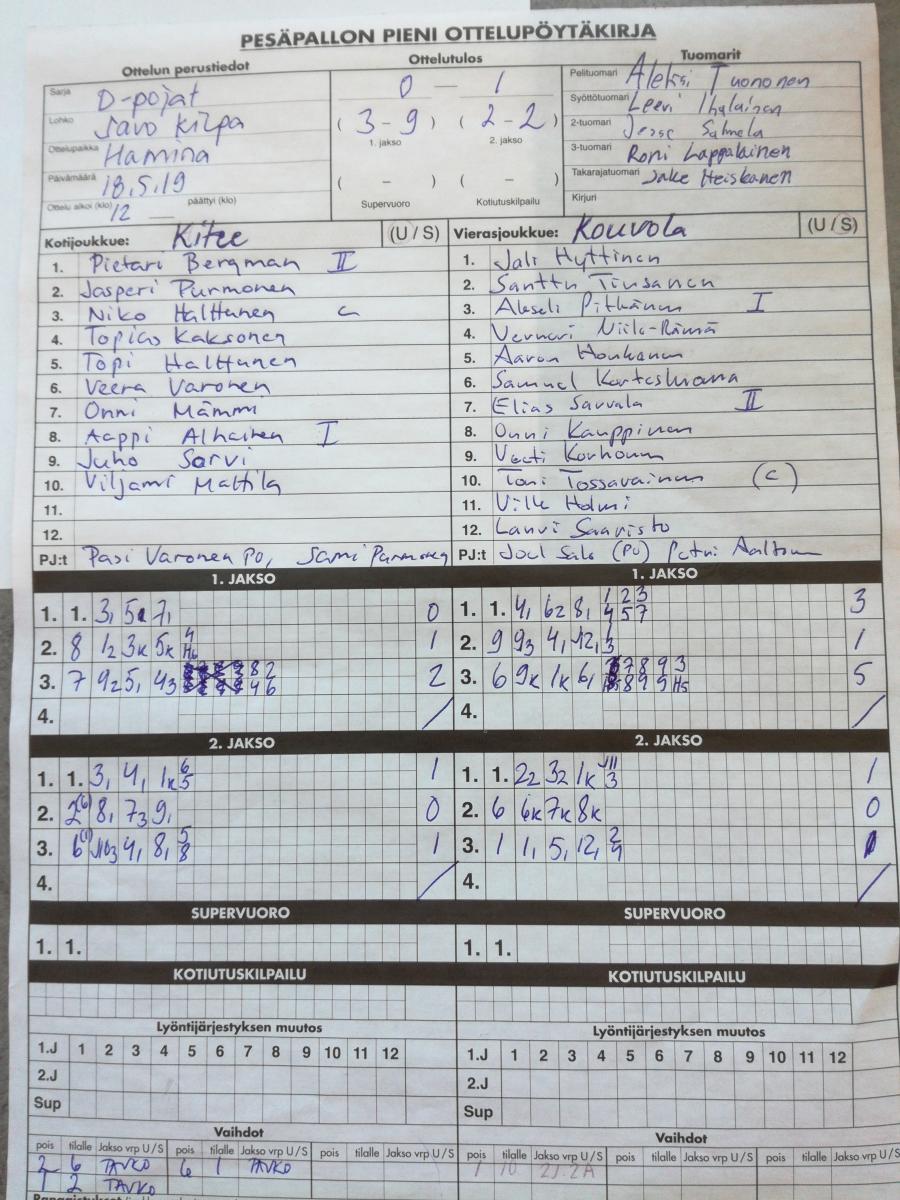 PESÄPALLON PIENI OTTELUPÖYTÄKIRJA
Ottelun perustiedot Ottelutulos Tuomarit
Sarja D-pojat 0 — 1 Pelituomari Aleksi Tuononen
Lohko Savo kilpa ( 3 - 9 ) ( 2 - 2 ) Syöttötuomari Leevi Ihalainen
1. jakso 2. jakso 2-tuomari Jesse Salmela
Ottelupaikka Hamina 3-tuomari Roni Lappalainen
Päivämäärä 18.5.19 ( – ) ( – ) Takarajatuomari Jake Heiskanen
Ottelu alkoi (klo) 12 päättyi (klo) Supervuoro Kotiutuskilpailu Kirjuri
Kotijoukkue: Kitee (U / S) Vierasjoukkue: Kouvola (U / S)
1. Pietari Bergman II 1. Jali Hyttinen
2. Jasperi Purmonen 2. Santtu Tiusanen
3. Niko Halttunen c 3. Akseli Pitkänen I
4. Topias Kaksonen 4. Verneri Niilo-Rämä
5. Topi Halttunen 5. Aaron Honkanen
6. Veera Varonen 6. Samuel
7. Onni Mämmi 7. Elias Savvala II
8. Aappi Alhainen I 8. Onni Kauppinen
9. Juho Sarvi 9. Veeti Korhonen
10. Viljami Mattila 10. Toni Tossavainen (c)
11. 11. Ville Holmi
12. 12. Lauri Saaristo
PJ:t Pasi Varonen PO, Sami Purmonen PJ:t Joel Salo (PO) Petri Aaltonen
1. JAKSO 1. JAKSO
1. 1. 3, 5, 7, 0 1. 1. 4, 62 8, 1 2 3 3
4 5 7
2. 8 12 3k 5k 4 1 2. 9 93 4, 12, 1
H6
3. 7 925, 43 8 2 2 3. 6 9k 1k 6, 7 8 9 3 5
4 6 8 9 9 H5
4. / 4. /
2. JAKSO 2. JAKSO
1. 1. 3, 4, 1k 6 1 1. 1. 22 32 1k 1
5 3
2. 2 8, 73 9, 0 2. 6 6k 7k 8k 0
3. 6 4, 8, 5 1 3. 1 1, 5, 12, 2 1
8
4. / 4. /
SUPERVUORO SUPERVUORO
1. 1. 1. 1.
KOTIUTUSKILPAILU KOTIUTUSKILPAILU
Lyöntijärjestyksen muutos Lyöntijärjestyksen muutos
1.J 1 2 3 4 5 6 7 8 9 10 11 12 1.J 1 2 3 4 5 6 7 8 9 10 11 12
2.J 2.J
Sup Sup
Vaihdot Vaihdot
pois tilalle Jakso vrp U / S pois tilalle Jakso vrp U / S pois tilalle Jakso vrp U / S pois tilalle Jakso vrp U / S pois tilalle Jakso vrp U / S pois tilalle Jakso vrp U / S
2 6 TAVKO 6 1 TAVKO 1 10 2J-2A
1 2 TAVKO